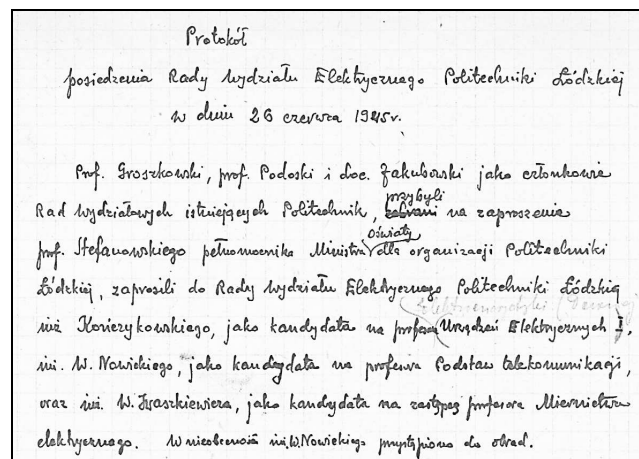 Protokół
posiedzenia Rady Wydziału Elektrycznego Politechniki Łódzkiej
w dniu 26 czerwca 1945r.
Prof. Groszkowski, prof. Podoski i doc. Jakubowski jako członkowie
Rad Wydziałowych istniejących Politechnik, przybyli na zaproszenie
prof. Stefanowskiego pełnomocnika Ministra Oświaty dla organizacji Politechniki
Łódzkiej, zaprosili do Rady Wydziału Elektrycznego Politechniki Łódzkiej
inż Konczykowskiego, jako kandydata na profesora Urządzeń Elektrycznych I,
inż. W. Nowickiego, jako kandydata na profesora Podstaw telekomunikacji,
oraz inż. W. Iwaszkiewicza, jako kandydata na zastępcę profesora Miernictwa
elektrycznego. W nieobecności inż. W. Nowickiego przystąpiono do obrad.